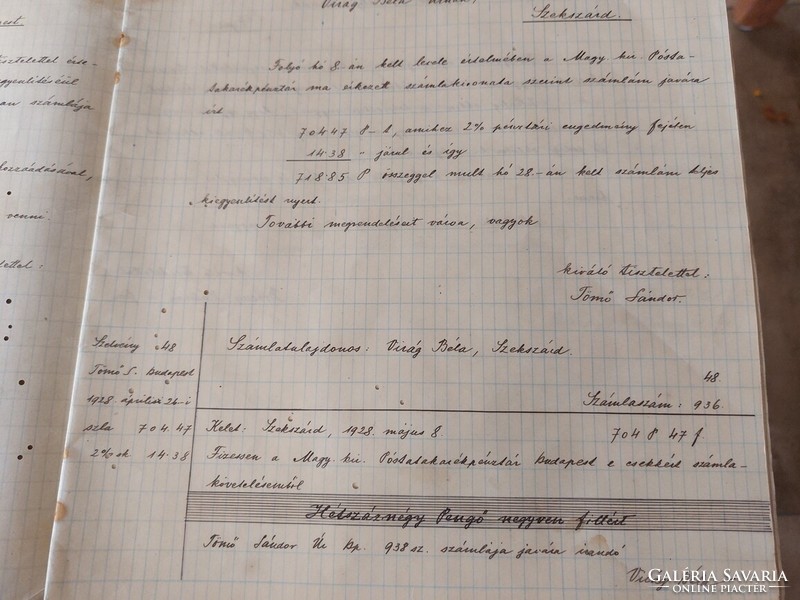 Virág Béla úrnak,
Szekszárd.
Folyó hó 8-án kelt levele értelmében a Magy. kir. Posta-
takarékpénztár ma érkezett számlakivonata szerint számlám javára
írt
704.47 P-t, amihez 2% pénztári engedmény fejében
14.38 - járul és így
718.85 P összeggel mult hó 28.-án kelt számlám teljes
kiegyenlítést nyert.
További megrendeléseit várva, vagyok
kiváló tisztelettel:
Tömő Sándor.
Szelvény 48
Tömő S. Budapest
1928. április 26-i
szla 704.47
2% sk 14.38
Számlatulajdonos: Virág Béla, Szekszárd.
48.
Számlaszám: 936.
Kelet: Szekszárd, 1928. május 8.
704 P 47 f.
Fizessen a Magy. kir. Postatakarékpénztár Budapest e csekkért számla-
követelésemből
Hétszáznégy Pengő negyven fillért
Tömő Sándor Úr Bp. 938 sz. számlája javára irandó
Virág
tisztelettel
egyenlítésül
számlája
hozzáadásával,
venni.
GALÉRIA SAVARIA
ONLINE PIACTÉR